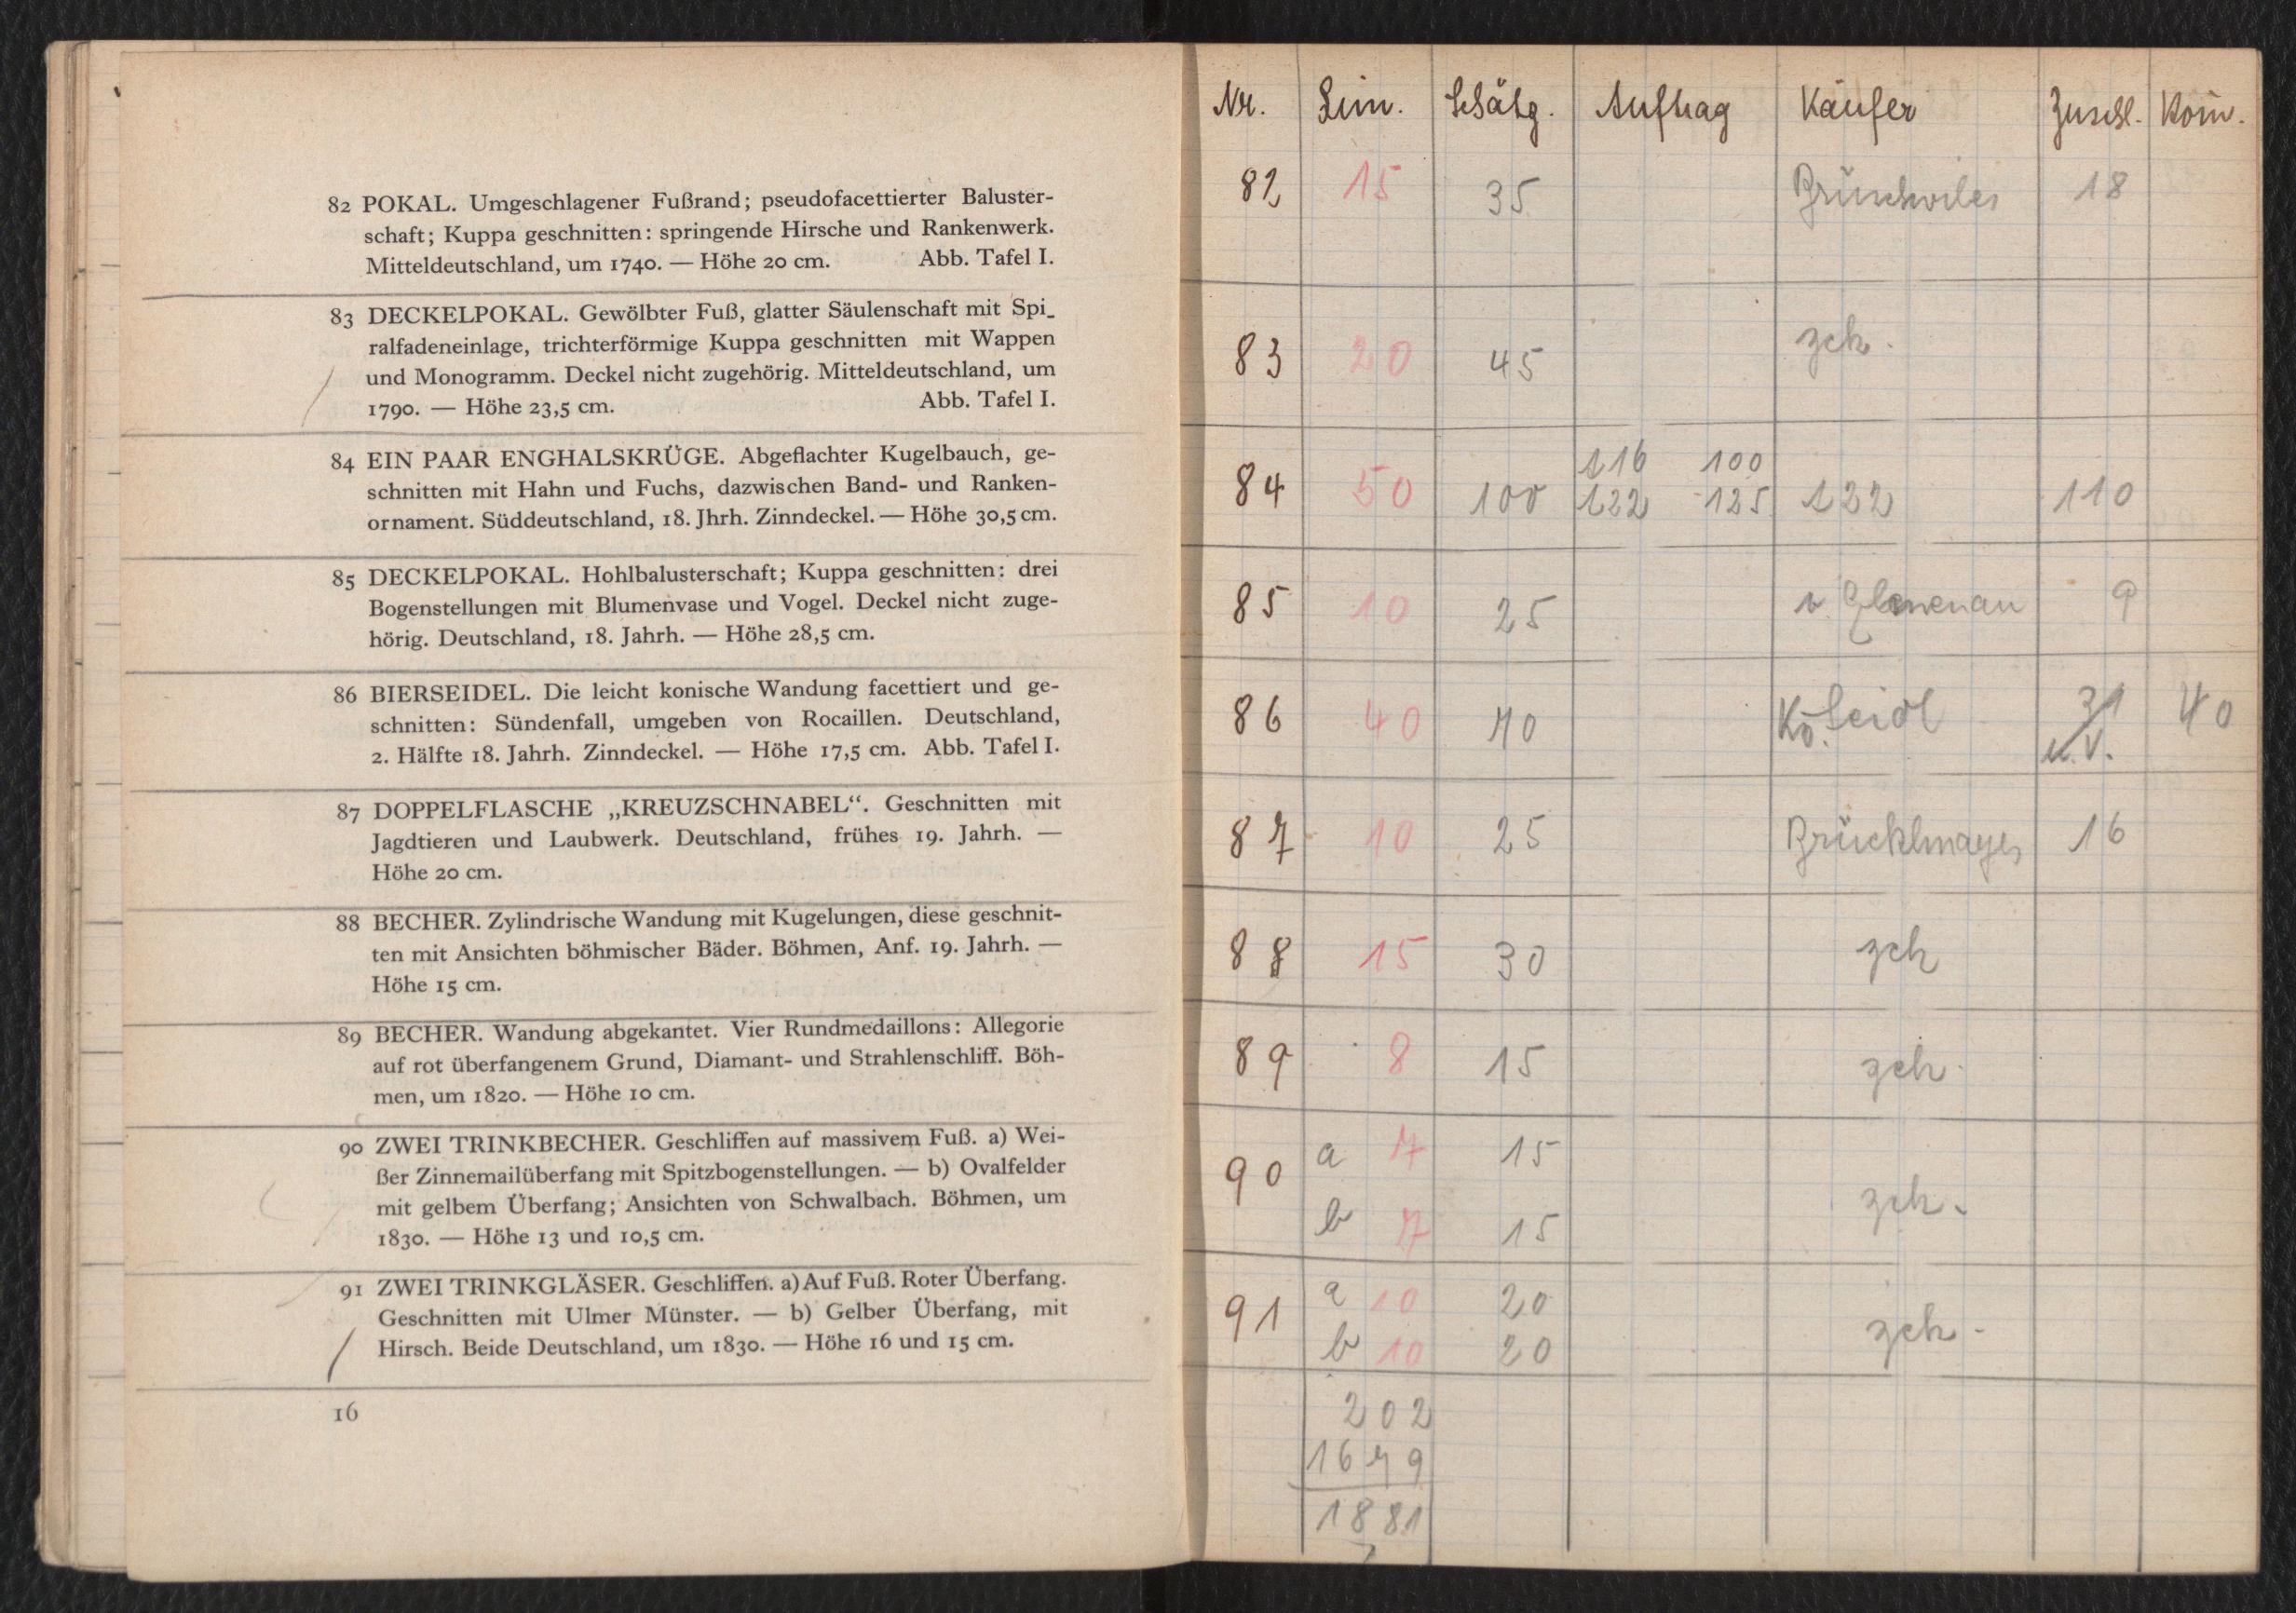 82 POKAL. Umgeschlagener Fußrand; pseudofacettierter Baluster-
schaft; Kuppa geschnitten: springende Hirsche und Rankenwerk.
Mitteldeutschland, um 1740. — Höhe 20 cm. Abb. Tafel I.
83 DECKELPOKAL. Gewölbter Fuß, glatter Säulenschaft mit Spi-
ralfadeneinlage, trichterförmige Kuppa geschnitten mit Wappen
und Monogramm. Deckel nicht zugehörig. Mitteldeutschland, um
1790. — Höhe 23,5 cm. Abb. Tafel I.
84 EIN PAAR ENGHALSKRÜGE. Abgeflachter Kugelbauch, ge-
schnitten mit Hahn und Fuchs, dazwischen Band- und Ranken-
ornament. Süddeutschland, 18. Jhrh. Zinndeckel. — Höhe 30,5 cm.
85 DECKELPOKAL. Hohlbalusterschaft; Kuppa geschnitten: drei
Bogenstellungen mit Blumenvase und Vogel. Deckel nicht zuge-
hörig. Deutschland, 18. Jahrh. — Höhe 28,5 cm.
86 BIERSEIDEL. Die leicht konische Wandung facettiert und ge-
schnitten: Sündenfall, umgeben von Rocaillen. Deutschland,
2. Hälfte 18. Jahrh. Zinndeckel. — Höhe 17,5 cm. Abb. Tafel I.
87 DOPPELFLASCHE „KREUZSCHNABEL“. Geschnitten mit
Jagdtieren und Laubwerk. Deutschland, frühes 19. Jahrh. —
Höhe 20 cm.
88 BECHER. Zylindrische Wandung mit Kugelungen, diese geschnit-
ten mit Ansichten böhmischer Bäder. Böhmen, Anf. 19. Jahrh. —
Höhe 15 cm.
89 BECHER. Wandung abgekantet. Vier Rundmedaillons: Allegorie
auf rot überfangenem Grund, Diamant- und Strahlenschliff. Böh-
men, um 1820. — Höhe 10 cm.
90 ZWEI TRINKBECHER. Geschliffen auf massivem Fuß. a) Wei-
ßer Zinnemailüberfang mit Spitzbogenstellungen. — b) Ovalfelder
mit gelbem Überfang; Ansichten von Schwalbach. Böhmen, um
1830. — Höhe 13 und 10,5 cm.
91 ZWEI TRINKGLÄSER. Geschliffen. a) Auf Fuß. Roter Überfang.
Geschnitten mit Ulmer Münster. — b) Gelber Überfang, mit
Hirsch. Beide Deutschland, um 1830. — Höhe 16 und 15 cm.
16
Nr. Lim. Schätzg. Auftrag Käufer Zuschl. Kom.
82 15 35 Brüschwiler 18
83 20 45 zck.
116 100
84 50 100 122 125 122 110
85 10 25 v. 9
86 40 70 Kö. Seidl 31 40
u.V.
87 10 25 Brücklmayer 16
88 15 30 zck
89 8 15 zck.
90 a 7 15
zck.
b 7 15
91 a 10 20
zck.
b 10 20
202
1679
1881